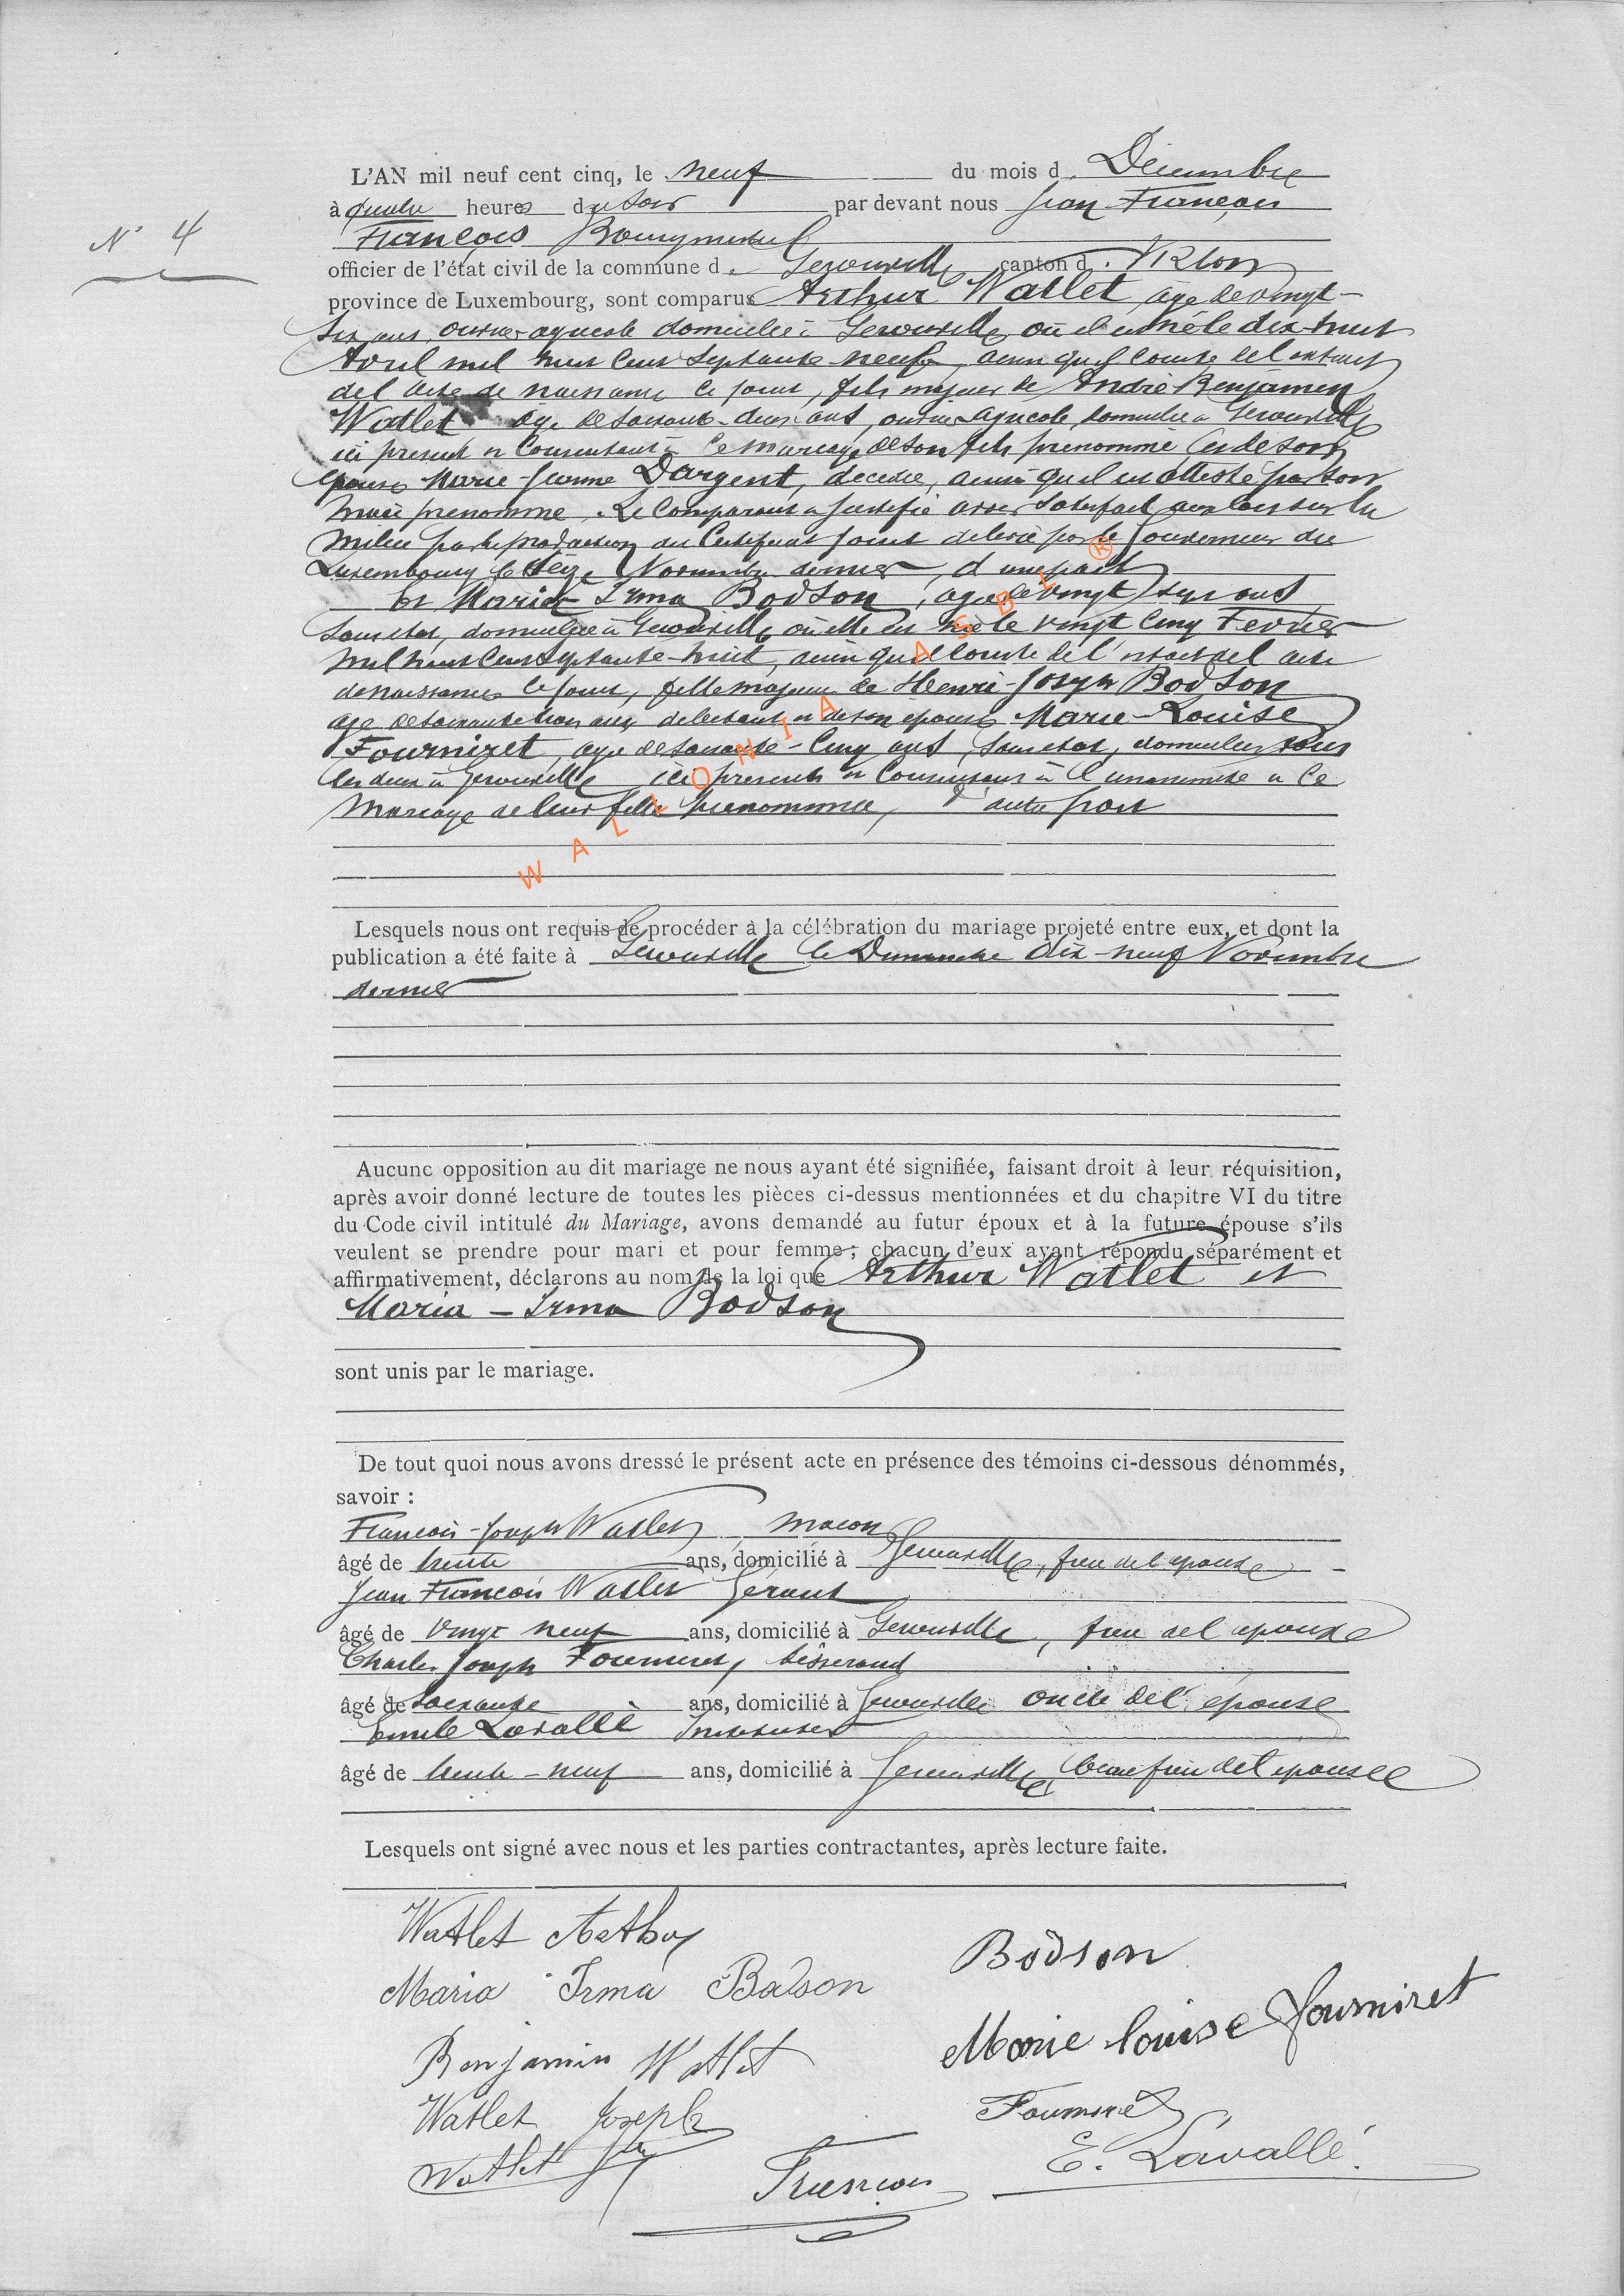 N° 4
L'AN mil neuf cent cinq, le neuf du mois de Décembre
à quatre heures du soir par devant nous Jean François
François Bourgmestre
officier de l'état civil de la commune de Gerouville canton de Virton
province de Luxembourg, sont comparus Arthur Watlet âgé de vingt-
six ans, ouvrier agricole domicilié à Gerouville où il est né le dix-huit
Avril mil huit cent septante neuf, ainsi qu'il conste de l'extrait
del acte de naissance ci joint, fils majeur de André Benjamin
Watlet âgé de soixante-deux ans, ouvrier agricole, domicilié à Gerouville
ici présent et consentant à ce mariage de son fils prénommé et de son
épouse Marie-Jeanne Dargent, décédée, ainsi qu'il est attesté par son
mari prénommé. Le comparant a justifié avoir satisfait aux lois sur la
milice par la production du certificat joint délivré par le Gouverneur du
Luxembourg le seize Novembre dernier, d'une part
et Maria Irma Bodson, âgée de vingt sept ans
sans état, domiciliée à Gerouville où elle est née le vingt cinq Février
mil huit cent septante-huit, ainsi qu'il conste de l'extrait del acte
de naissance ci joint, fille majeure de Henri-Joseph Bodson
âgé de soixante trois ans, débitant et de son épouse Marie-Louise
Fourniret, âgée de soixante-cinq ans, sans état, domiciliés tous
les deux à Gerouville ici présents et consentant à l'unanimité à ce
mariage de leur fille prénommée, d'autre part
WALLONIA ASBL ®
Lesquels nous ont requis de procéder à la célébration du mariage projeté entre eux, et dont la
publication a été faite à Gerouville le Dimanche dix-neuf Novembre
dernier
Aucune opposition au dit mariage ne nous ayant été signifiée, faisant droit à leur réquisition,
après avoir donné lecture de toutes les pièces ci-dessus mentionnées et du chapitre VI du titre
du Code civil intitulé du Mariage, avons demandé au futur époux et à la future épouse s'ils
veulent se prendre pour mari et pour femme ; chacun d'eux ayant répondu séparément et
affirmativement, déclarons au nom de la loi que Arthur Watlet et
Maria - Irma Bodson
sont unis par le mariage.
De tout quoi nous avons dressé le présent acte en présence des témoins ci-dessous dénommés,
savoir :
François-Joseph Watlet, maçon
âgé de trente ans, domicilié à Gerouville, frère del epoux
Jean François Watlet Gérant
âgé de vingt neuf ans, domicilié à Gerouville, frère del epoux
Charles Joseph Fourniret, tisserand
âgé de soixante ans, domicilié à Gerouville oncle del épouse
Emile Lavallé Instituteur
âgé de trente-neuf ans, domicilié à Gerouville, beau frère del epouse
Lesquels ont signé avec nous et les parties contractantes, après lecture faite.
Watlet Arthur
Bodson
Maria Irma Bodson
Marie louise fourniret
Benjamin Watlet
Watlet Joseph
Fourniret
Watlet
François
E. Lavallé